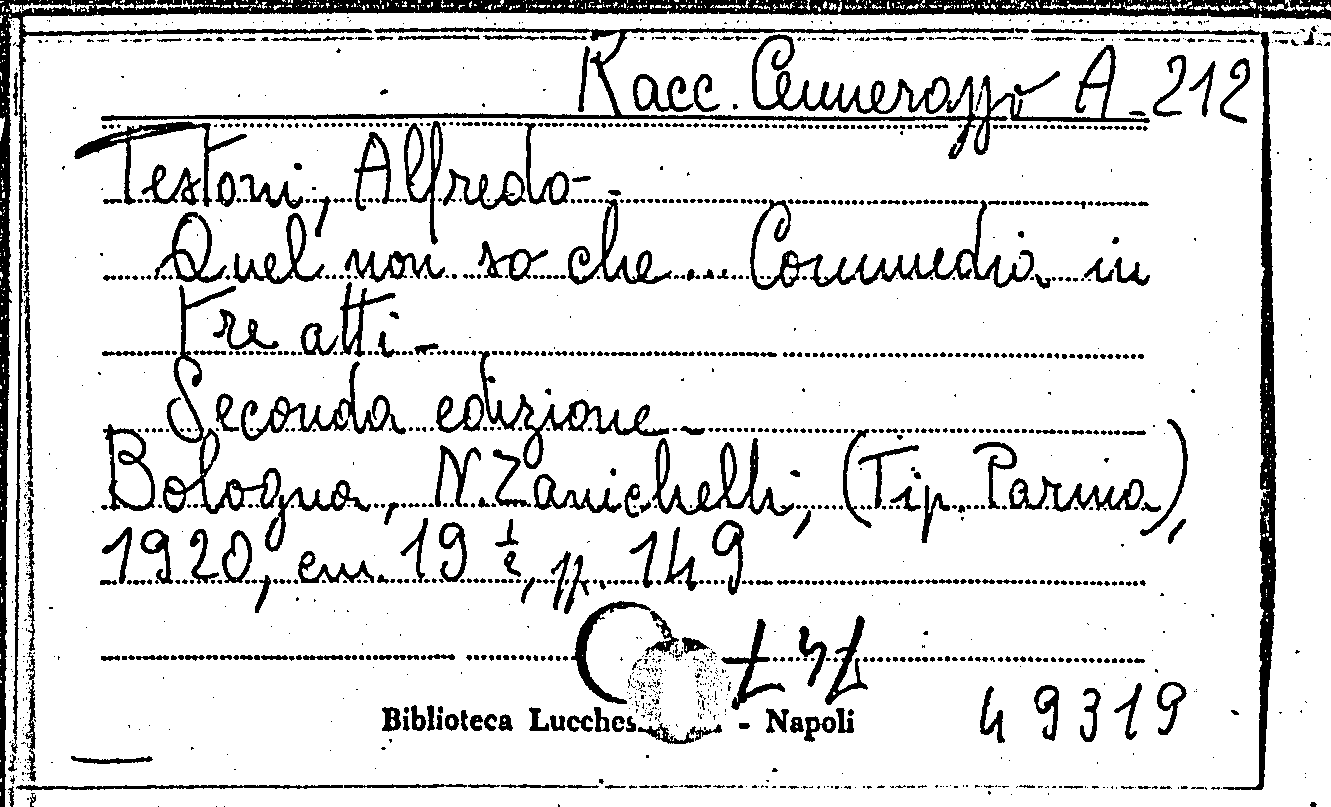 Racc. Cennerazzo A-212
Testoni, Alfredo-
Quel non so che... Commedia in
tre atti-
Seconda edizione-
Bologna, N. Zanichelli, (Tip. Parma),
1920, cm. 19 ½, pp. 149
Biblioteca - Napoli
49319